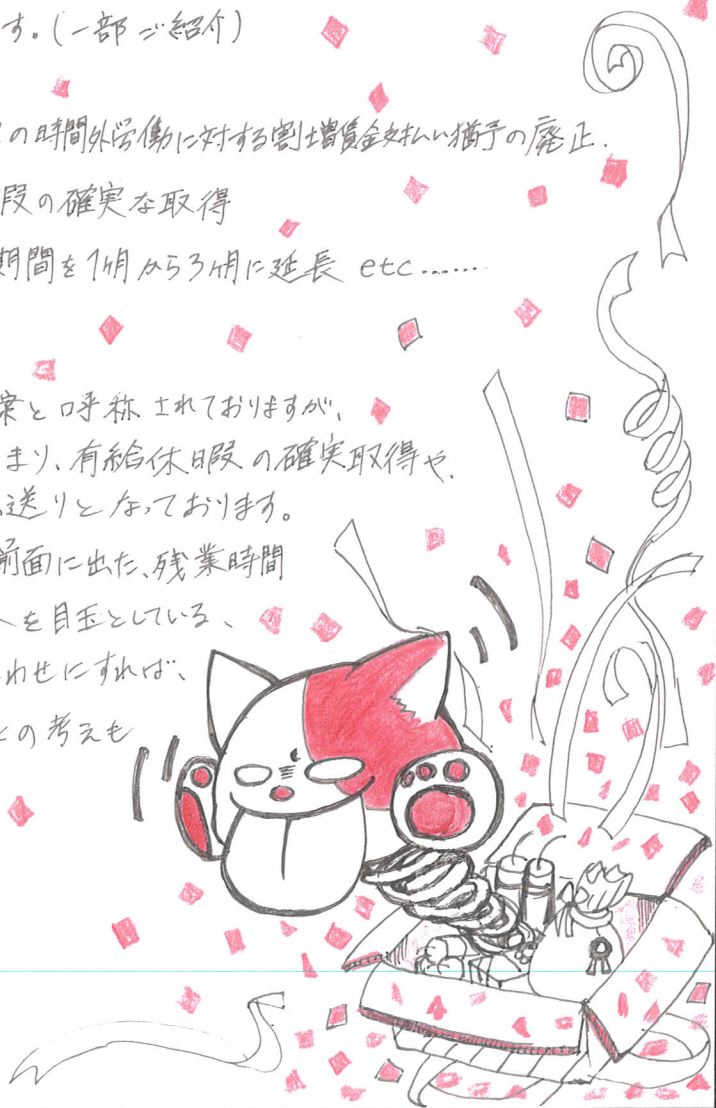 す。(一部ご紹介)
の時間外労働に対する割増賃金支払い猶予の廃止.
暇の確実な取得
期間を1ヶ月から3ヶ月に延長 etc.......
案と呼称されておりますが、
まり、有給休暇の確実取得や、
送りとなっております。
前面に出た、残業時間
を目玉としている、
わせにすれば、
の考えも